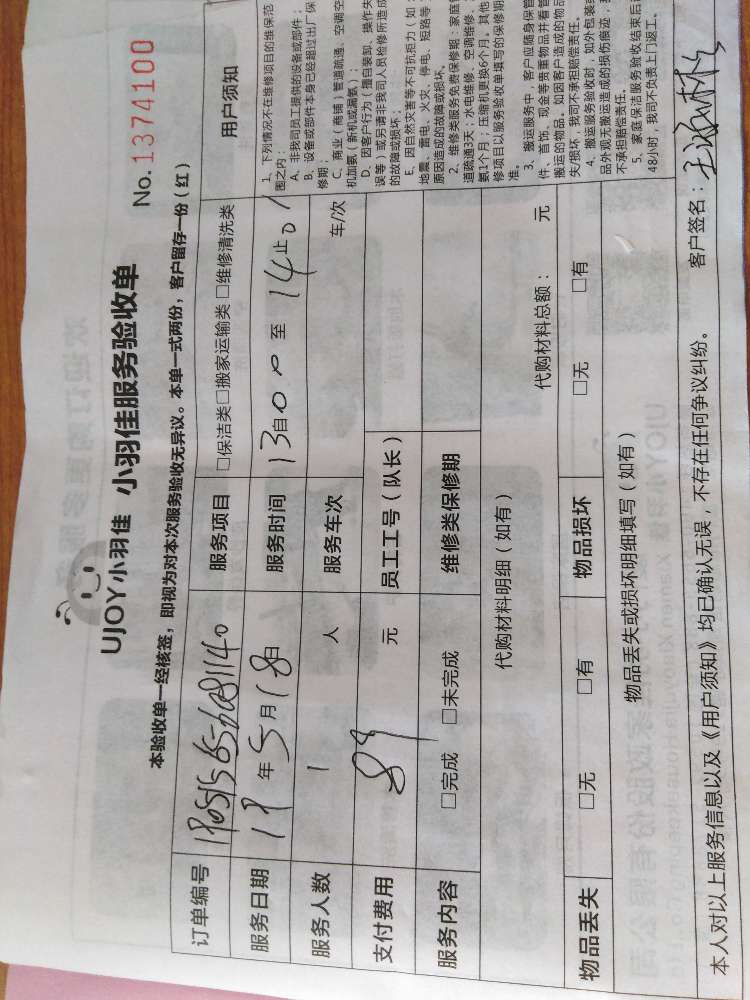 UJOY小羽佳 小羽佳服务验收单
No. 1374100
本验收单一经核签，即视为对本次服务验收无异议。本单一式两份，客户留存一份（红）
订单编号
服务项目 □保洁类□搬家运输类 □维修清洗类
服务日期 18年5月18日
服务时间 13自00 至 14止01
服务人数 1 人
服务车次 车/次
支付费用 元
员工工号（队长）
服务内容 □完成 □未完成
维修类保修期
代购材料明细（如有） 代购材料总额： 元
物品丢失 □无 □有
物品损坏 □无 □有
物品丢失或损坏明细填写（如有）
用户须知
1、下列情况不在维修项目的维保范
围之内：
A、非我司员工提供的设备或部件；
B、设备或部件本身已经超过出厂保
修期；
C、商业（商铺）管道疏通、空调空
机加氨（新机或漏氨）；
D、因客户行为（擅自装卸、操作失
误等）或另请非我司人员检修所造成
的故障或损坏；
E、因自然灾害等不可抗拒力（如：
地震、雷电、火灾、停电、短路等
原因造成的故障或损坏。
2、维修类服务免费保修期：家庭
道疏通3天；水电维修、空调维修、
氨1个月；压缩机更换6个月。其他
修项目以服务验收单填写的保修期
准。
3、搬运服务中，客户应随身保管
件、首饰、现金等贵重物品并看管
搬运的物品，如因客户造成的物品
失/损坏，我司不承担赔偿责任。
4、搬运服务验收时，如外包装
品外观无搬运造成的损伤痕迹，
不承担赔偿责任。
5、家庭保洁服务验收结束后
48小时，我司不负责上门返工。
本人对以上服务信息以及《用户须知》均已确认无误，不存在任何争议纠纷。 客户签名：